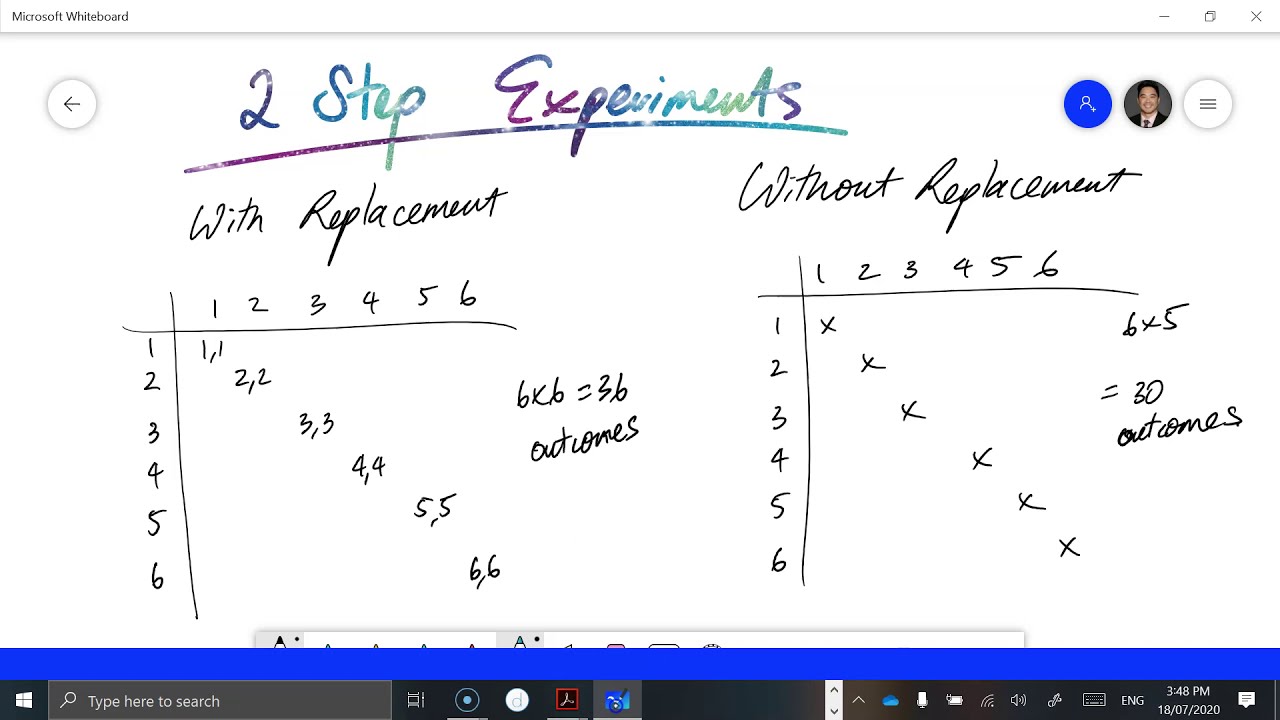 Microsoft Whiteboard
2 Step Experiments
With Replacement
1 2 3 4 5 6
1 1,1
2 2,2
3 3,3
4 4,4
5 5,5
6 6,6
6x6 = 36
outcomes
Without Replacement
1 2 3 4 5 6
1 x
2 x
3 x
4 x
5 x
6 x
6x5
= 30
outcomes
Type here to search
d
ENG
3:48 PM
18/07/2020